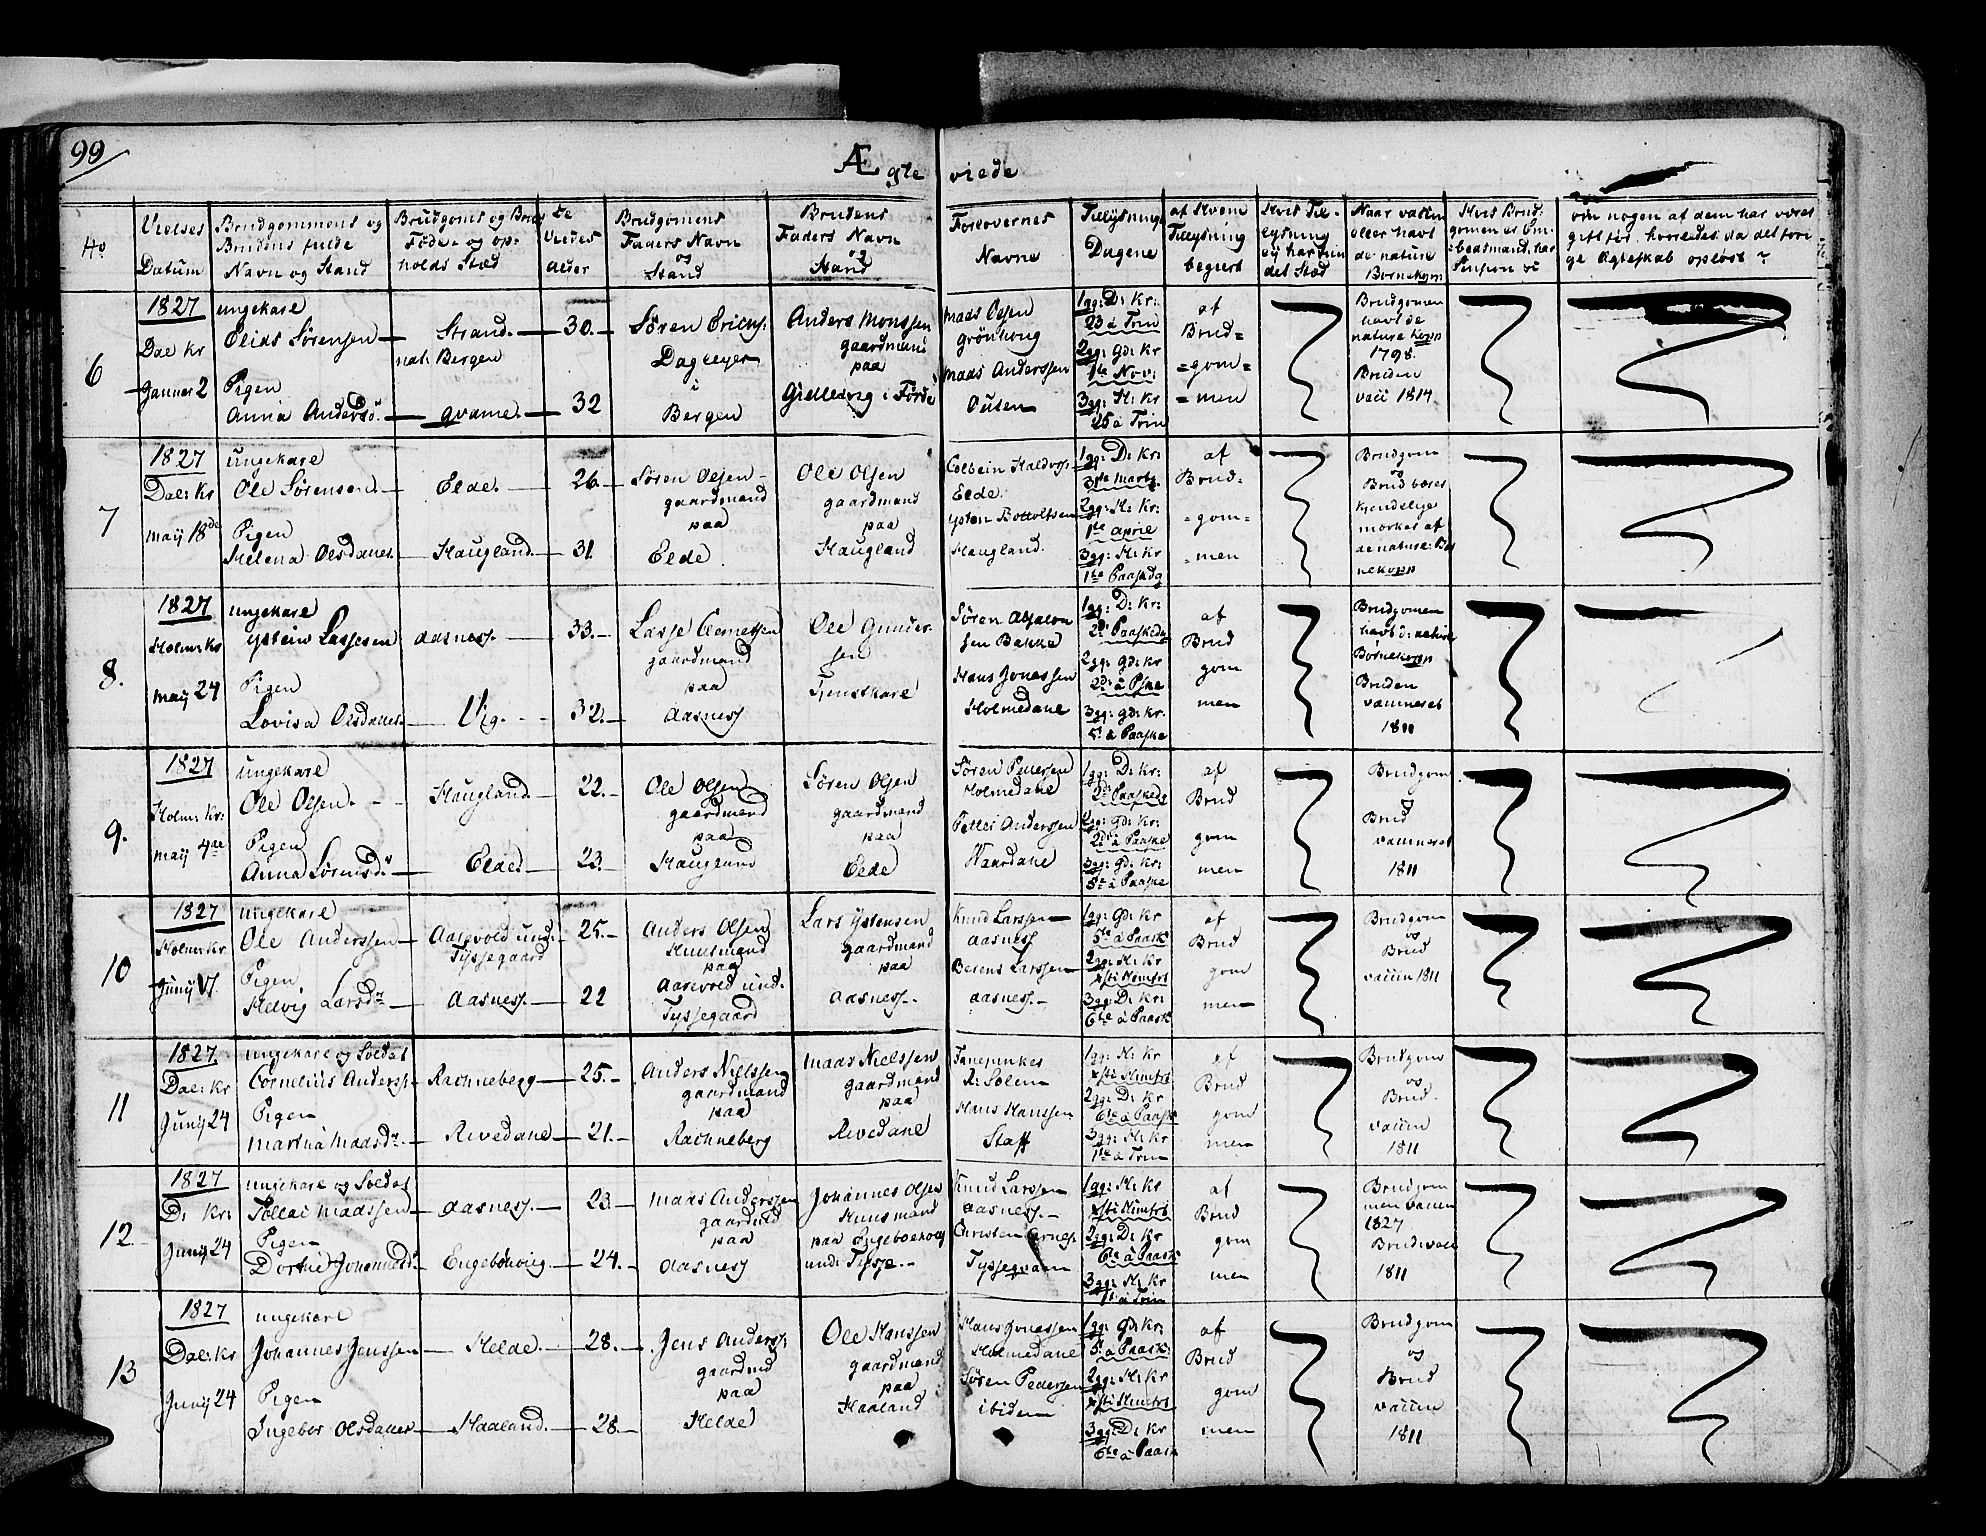 99
Ægte viede
No
Vielses
Datum
Brudgommens og
Brudens fulde
Navn og Stand
Brudgoms og Brud
Føde- og op-
holds Stæd
de
Viedes
alder
Brudgomens
Faders Navn
og
Stand
Brudens
Faders Navn
og
Stand
Forlovernes
Navne
Tillysning
Dagene
af Hvem
Tillysning
begiert
Hvis Til-
lysning
ej har fun
det Stæd
Naar vaccin
eller havt
de naturl
Bornekopr
Hvis Brud-
gomen er Em-
beatsmand, har
Pension &c
om nogen af dem har været
gift før, hvorledes da det fori
ge Ægteskab opløst?
6
1827
Dae Kr
Januar 2
ungekarl
Elias Sørensen
Pigen
Anna Andersd.
Strand.
nat. Bergen
Qvame.
30.
32
Søren Erics:
Dagleyer
i
Bergen
Anders Monssen
gaardmand
paa
Gielleevig i Førde
Maas Olsen
Grönhoug
Maas Anderssen
Ousen
1gg: D: Kr:
23 à Trin
2gg: Gd: Kr
1te Nov:
3gg: H: Kr
25 à Trin
af
Brud=
=gom=
=men
Brudgomen
havt de
naturl kopp
1798.
Bruden
vacc 1814
7
1827
Dae: Kr
May 18de
ungekarl
Ole Sørensen.
Pigen
Helena Olsdaner.
Elde.
Haugland.
26.
31
Søren Olsen
gaardmand
paa
Elde.
Ole Olsen
gaardmand
paa
Haugland
Colbein Haldors:
Elde.
Ysten Bottolfsen
Haugland.
1gg: D: Kr:
31te Marts.
2gg: H: Kr:
1te April
3gg: H: Kr
1te Paaskdg
af
Brud=
=gom=
=men
Brudgom
og
Brud bæres
kiendelige
mærker af
de naturl: Bør
nekopp
8.
1827
Holm: Kr
May 24
ungekarl
Ystein Lassesen
Pigen
Lovisa Olsdaner.
Aasnes.
Vig.
33.
32.
Lasse Clemetsen
gaardmand
paa
Aasnes
Ole Gunder-
sen
Tjenstkarl
Søren Absalon
sen Bakke
Hans Jonassen
Holmedale
1gg: D: Kr:
2d Paaskedg
2gg: Gd: Kr
2d: à Pske
3gg: Gd: Kr.
5te à Paaske
af
Brud
gom
men
Brudgomen
havt d: natürl
Børnekopp
Bruden
vaccineret
1811
9.
1827
Holm: Kr:
May 4de
ungekarl
Ole Olsen.
Pigen
Anna Sørensd:
Haugland.
Elde.
22.
23.
Ole Olsen
gaardmand
paa
Haugland
Søren Olsen
gaardmand
paa
Elde
Søren Pedersen
Holmedale
Pettei Anderssen
Vaardahl
1gg: D: Kr:
2d: Paaskedg
2gg: Gd: Kr:
2d: à Paaske
3gg: Gd: Kr:
5te à Paaske
af
Brud
gom
men
Brudgom
&
Brud
vaccineret
1811
10
1827
Holm: Kr
Juny 17
ungekarl
Ole Anderssen
Pigen
Helvig Larsd:
Aarevold und:
Tyssegaard
Aasnes.
25.
22
Anders Olsen
Huusmand
paa
Aarevold und:
Tyssegaard
Lars Ystensen
gaardmand
paa
Aasnes.
Knud Larssen
Aasnes
Berent Larssen
Aasnes.
1gg: Gd: Kr
5te à Paask
2gg: H: Kr
Xsti Himfrt
3gg: D: Kr:
6te à Paask
af
Brud
gom
men
Brudgom
og
Brud
vaccin 1811
11
1827.
Dae: Kr
Juny 24
ungekarl og Soldat
Cornelius Anders:
Pigen
Martha Maasdr.
Rachneberg
Rivedale
25.
21.
Anders Nielssen
gaardmand
paa
Rachneberg
Maas Nielssen
gaardmand
paa
Rivedale
Fanejunker
R: Solem
Hans Hanssen
Staff
1gg: H: Kr
Xsti Himfrt
2gg: D: Kr
6te à Paask
3gg: H: Kr
1te à Trin
af
Brud
gom
men
Brudgom
og
Brud.
vaccin
1811
12
1827
D: Kr:
Juny 24
ungekarl og Soldat
Tollai Maassen
Pigen
Dorthe Johannesd:
Aasnes.
Engebøhvig
23.
24.
Maas Anderssen
gaardmd
paa
Aasnes
Johannes Olsen
Huusmand
paa Engeboehoug
und: Tysse.
Knud Larssen
Aasnes.
Christen Arnes:
Tyssegaarn
1gg: H: Kr
Xsti Himfrt
2gg: D: Kr
6te à Paask
3gg: H: Kr
1te à Trin
af
Brud
gom
men
Brudgom
men vaccin
1827
Brud vacc
1811
13
1827
Dae: Kr
Juny 24
ungekarl
Johannes Jenssen
Pigen
Ingebor Olsdaner
Helde.
Haaland.
28.
28.
Jens Anders:
gaardmd
paa
Helde
Ole Hanssen
gaardmand
paa
Haaland
Hans Jonassen
Holmedale
Søren Pedersen
ibidem
1gg: Gd: Kr:
5te à Paask:
2gg: H: Kr
Xsti Himfrt
3gg: D: Kr
6te à Paask
af
Brud
gom
men
Brudgom
og
Brud
vaccin
1811